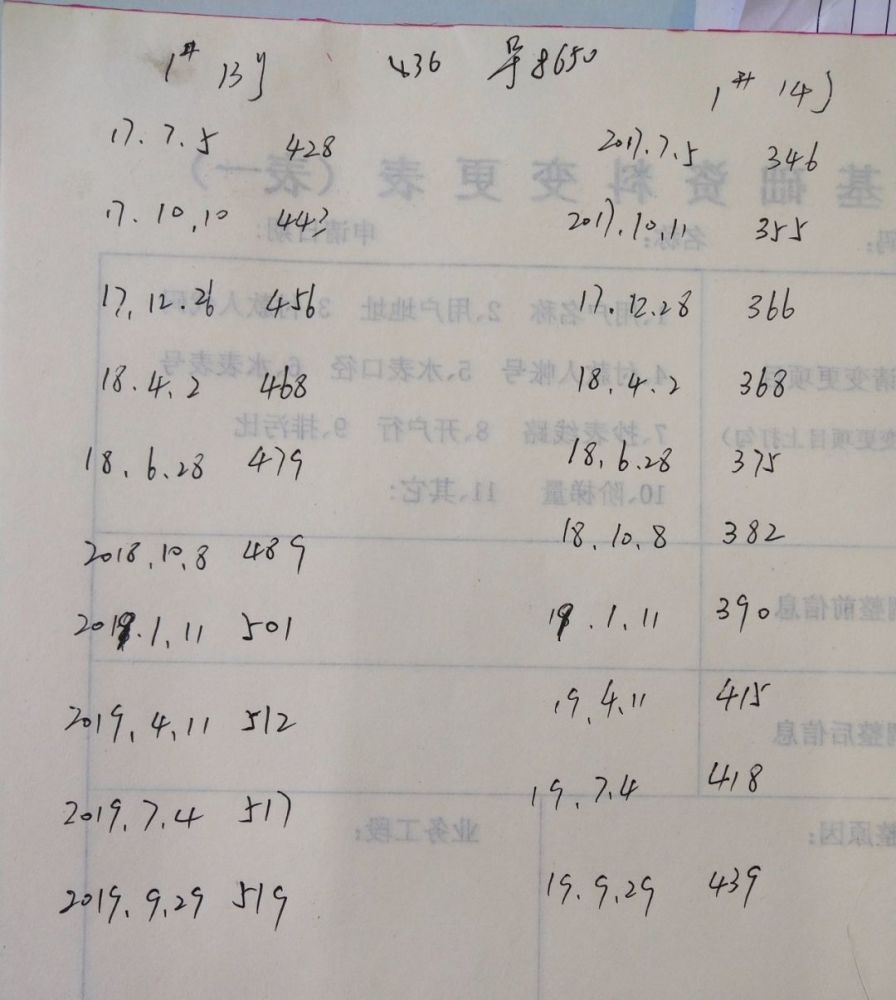 1# 13 436 号8650
1# 14
17.7.5 428 2017.7.5 346
17.10.10 442 2017.10.11 355
17.12.26 456 17.12.28 366
18.4.2 468 18.4.2 368
18.6.28 479 18.6.28 375
2018.10.8 489 18.10.8 382
2019.1.11 501 19.1.11 390
2019.4.11 512 19.4.11 415
2019.7.4 517 19.7.4 418
2019.9.29 519 19.9.29 439
基础资料变更表（表一）
名称： 申请日期：
1、用户名称 2、用户地址
4、付款人帐号 5、水表口径 6、水表表号
7、抄表线路 8、开户行 9、排污比
10、阶梯量 11、其它：
请变更项
变更项目上打勾）
调整前信息
调整后信息
整原因： 业务工段：